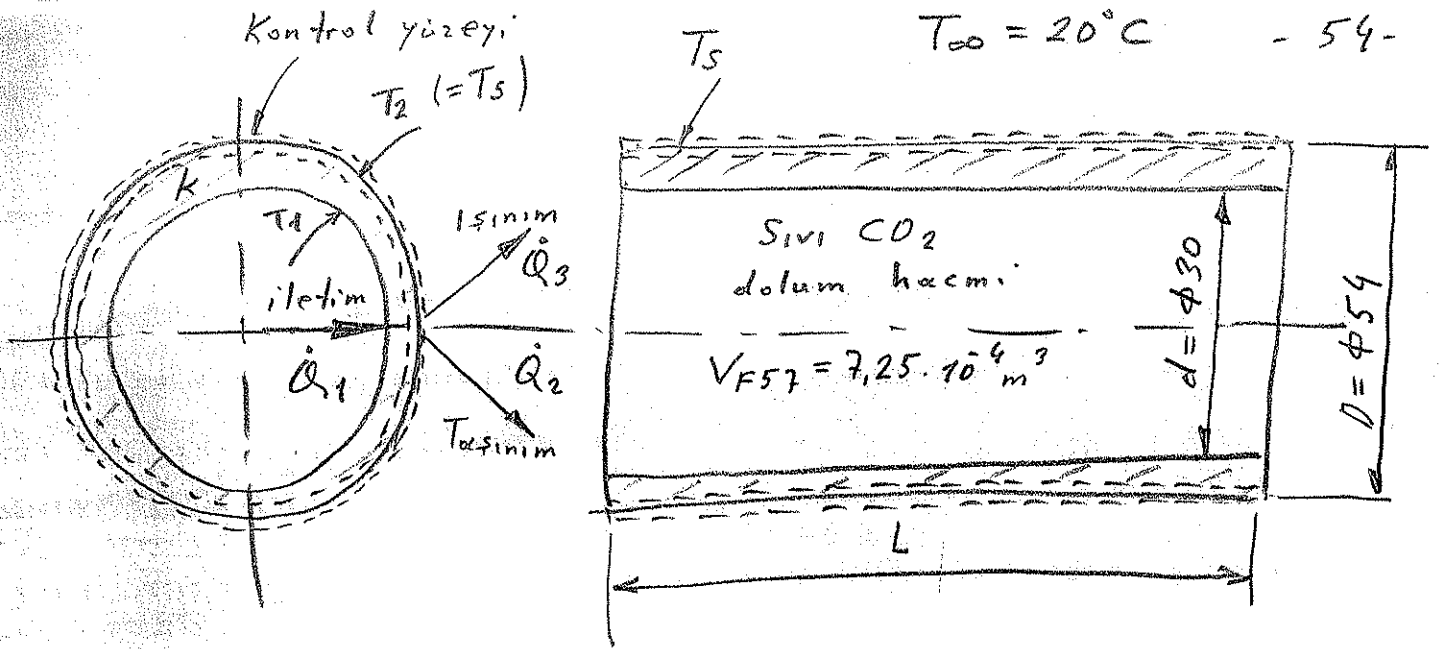 Kontrol yüzeyi
T∞ = 20°C
- 54-
T2 (=Ts)
Ts
K
T1
Işınım
Q̇3
iletim
Q̇1
Q̇2
Taşınım
Sıvı CO2
dolum hacmi
VF57 = 7,25.10⁻⁴ m³
d= ϕ30
D= ϕ54
L